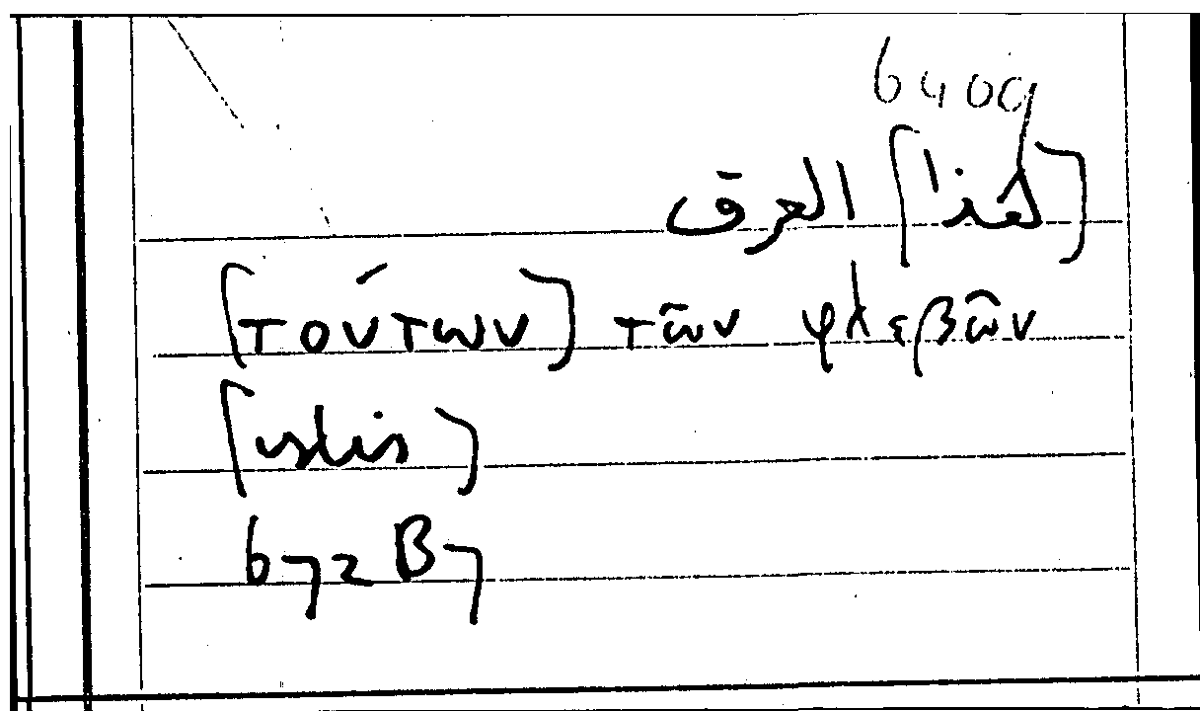 6409
[هذا] العرق
[τούτων] τῶν φλεβῶν
672 B7